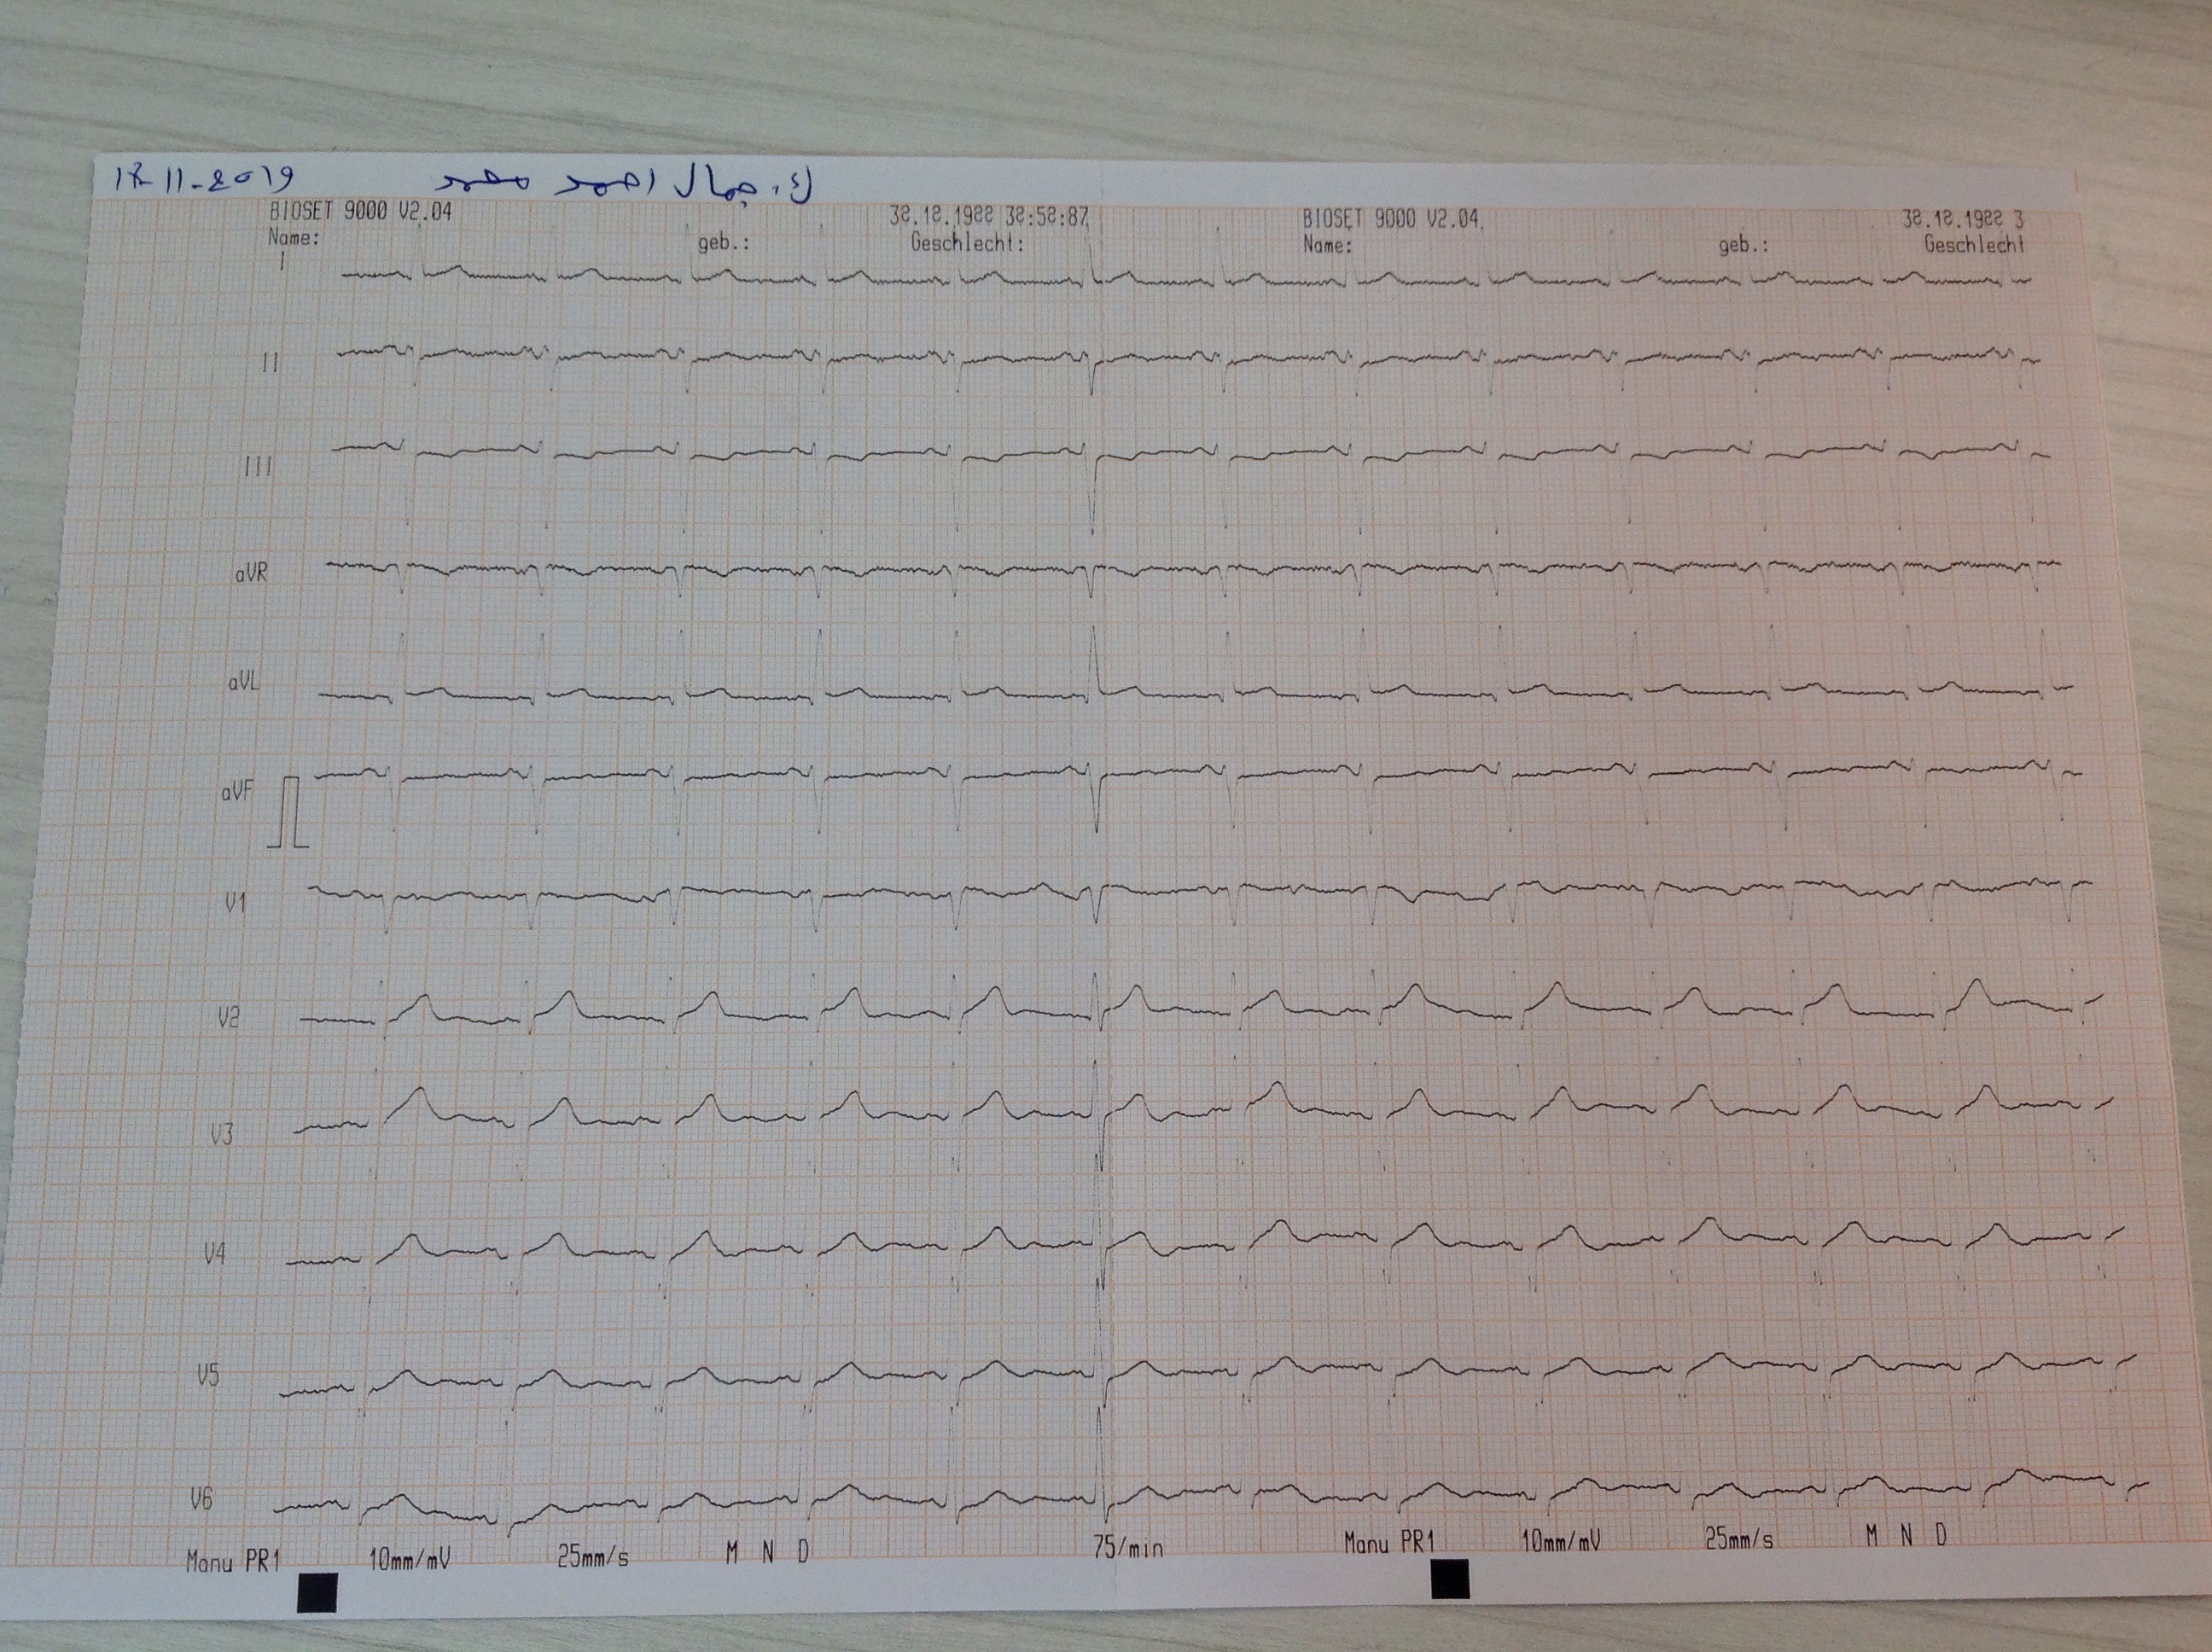 11-2019 د. جمال احمد محمد
BIOSET 9000 V2.04 32.12.1922 32:52:87 BIOSET 9000 V2.04 32.12.1922 3
Name: geb.: Geschlecht: Name: geb.: Geschlecht
I
II
III
aVR
aVL
aVF
V1
V2
V3
V4
V5
V6
Manu PR1 10mm/mV 25mm/s M N D 75/min Manu PR1 10mm/mV 25mm/s M N D